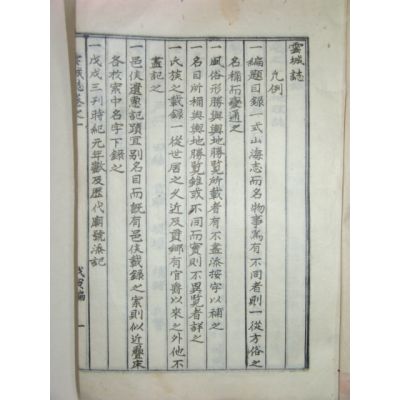 雲城誌
凡例
一編題目錄一式山海志而名物事爲有不同者則一從方俗之
名稱而變通之
一風俗形勝與輿地勝覽所載者有不盡添按字以補之
一名目所稱與輿地勝覽雖或不同而實則不異覽者詳之
一氏族之載錄一從世居之久近及貫鄕有官爵以來之外他不
盡記之
一邑俠遺憲記蹟宜別名目而旣有邑俠載錄之案則似近疊床
各於案中名字下錄之
一戊戌三刊時紀元年數及歷代廟號添記
雲城誌卷之一
戊寅編
一